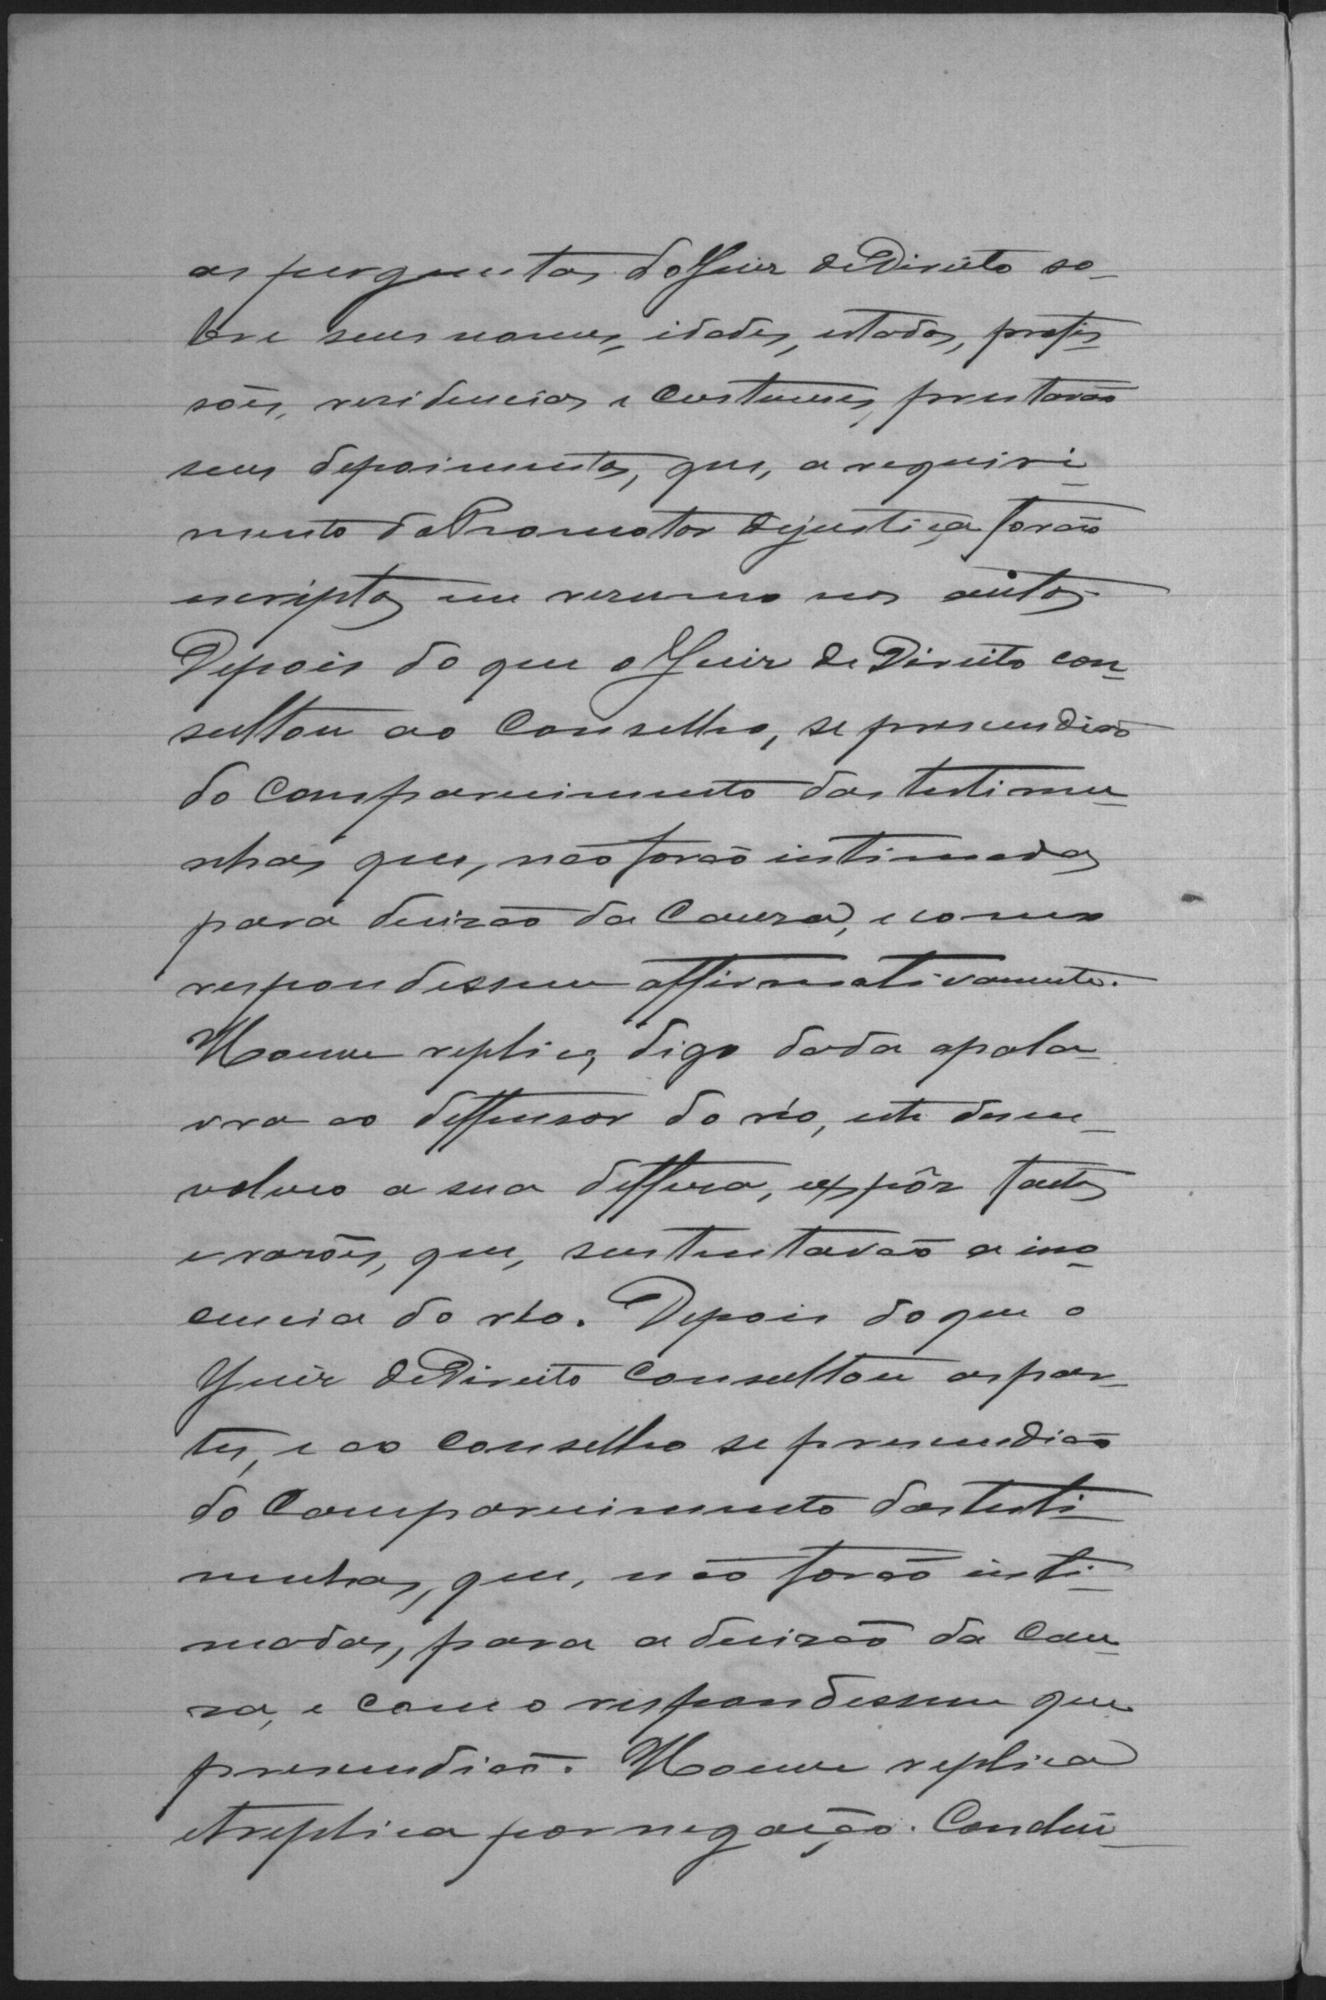 as perguntas do Juiz de Direito so-
bre seus nomes, idades, estados, profis-
sões, residencias e custumes, prestarão
seus depoimentos, que, a requiri-
mento do Promotor de justiça forão
escriptos em resumo nos autos.
Depois do que o Juiz de Direito con-
sultou ao Conselho, se prescendião
do comparecimento das testimu-
nhas que, não forão intimadas
para decizão da Cauza, e como
respondessem affirmativamente.
Houve replica, digo dada apala-
vra ao deffensor do réo, este desen-
volveo a sua deffeza, expôz factos
e razões, que, sustentavão a ino-
cencia do réo. Depois do que o
Juiz de Direito consultou as par-
tes, e ao Conselho se prescendião
do Comparecimento das testi-
munhas, que, não forão inti-
madas, para a decizão da Cau-
za, e como respondessem que
prescendião. Houve replica
e treplica por negação. Conclui-